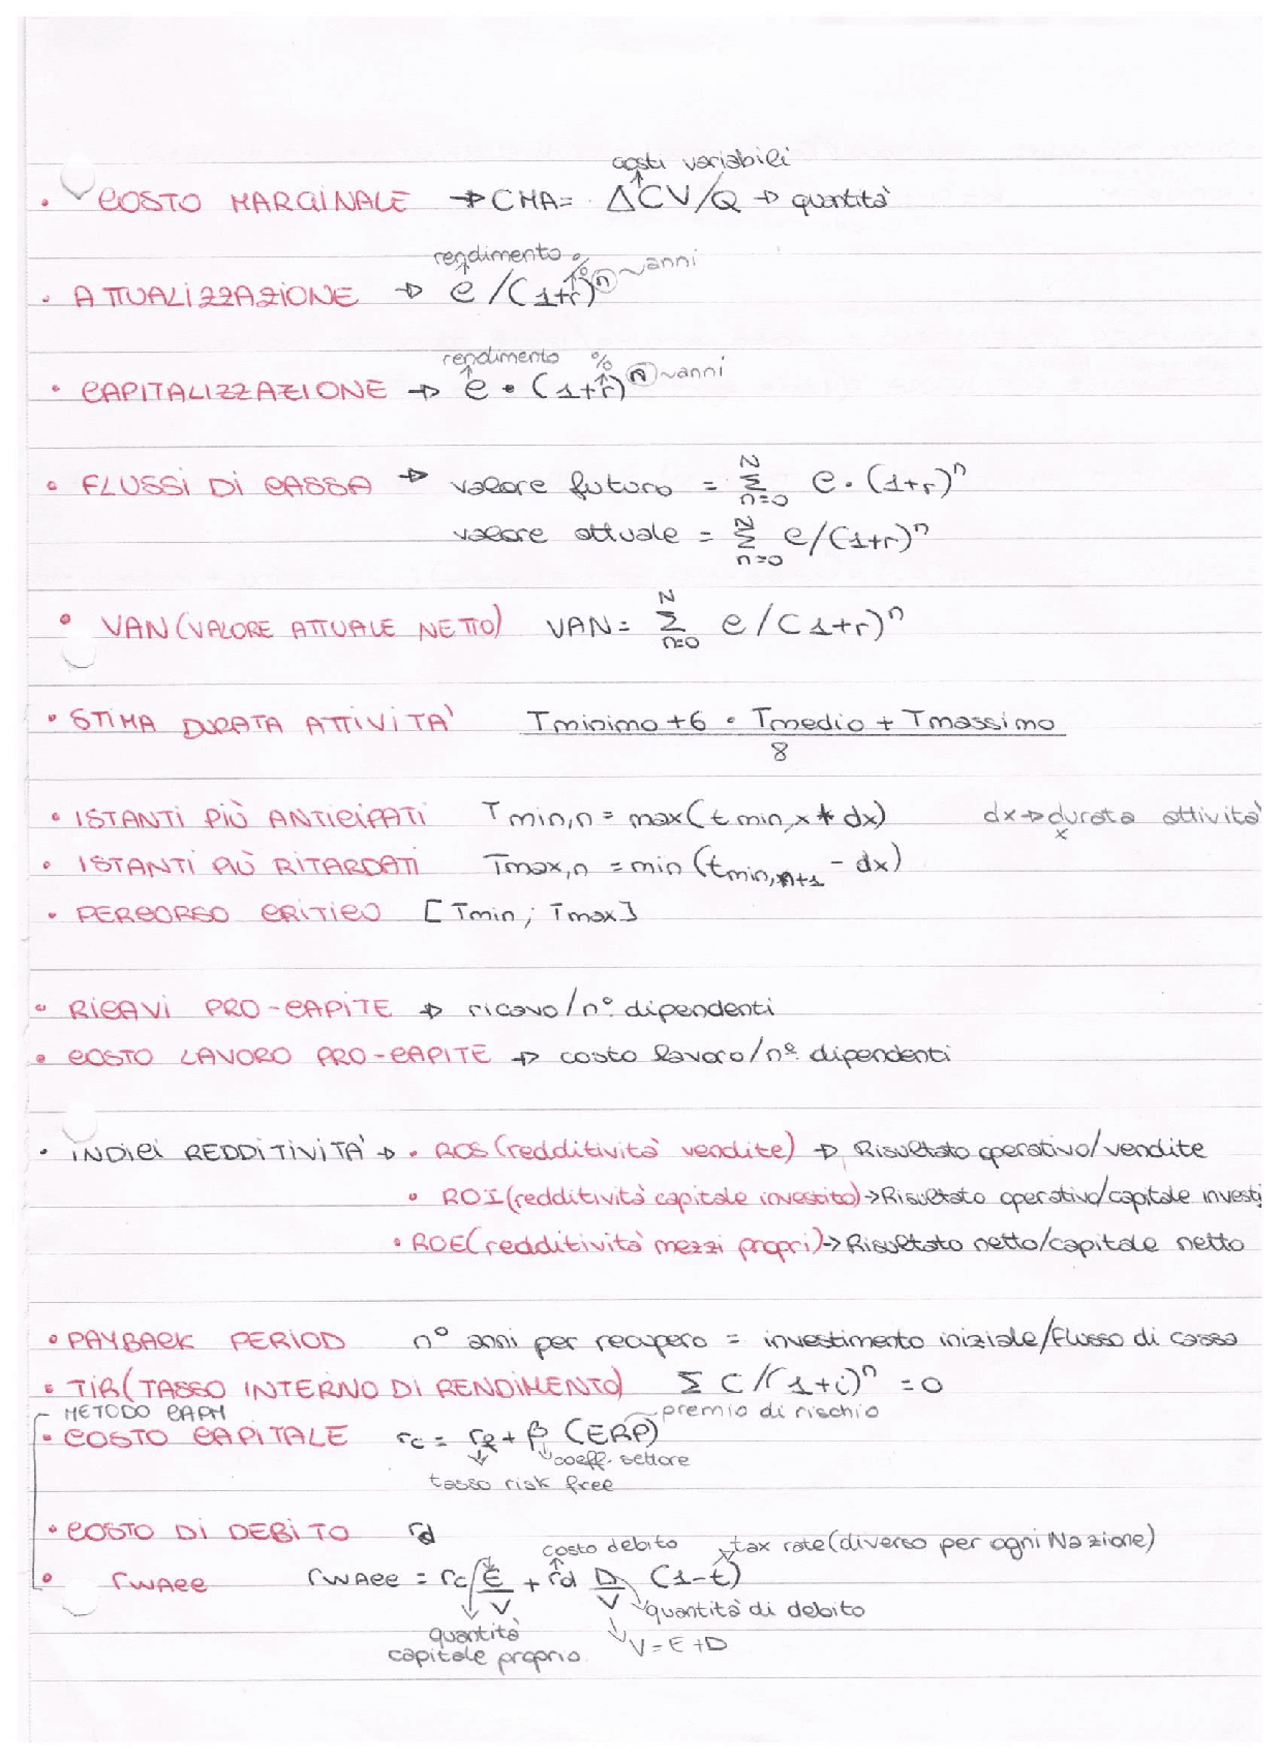 costi variabili
• COSTO MARGINALE → CMA = ΔCV/Q → quantità
rendimento % anni
• ATTUALIZZAZIONE → C/(1+r)^n
rendimento % anni
• CAPITALIZZAZIONE → C • (1+r)^n
• FLUSSI DI CASSA → valore futuro = Σ_{n=0}^{N} C • (1+r)^n
valore attuale = Σ_{n=0}^{N} C/(1+r)^n
• VAN (VALORE ATTUALE NETTO) VAN = Σ_{n=0}^{N} C/(1+r)^n
• STIMA DURATA ATTIVITÀ Tminimo + 6 • Tmedio + Tmassimo
8
• ISTANTI PIÙ ANTICIPATI Tmin,n = max(tmin,x + dx) dx → durata attività
x
• ISTANTI PIÙ RITARDATI Tmax,n = min(tmin,n+1 - dx)
• PERCORSO CRITICO [Tmin; Tmax]
• RICAVI PRO-CAPITE → ricavo/n° dipendenti
• COSTO LAVORO PRO-CAPITE → costo lavoro/n° dipendenti
• INDICI REDDITIVITÀ → • ROS (redditività vendite) → Risultato operativo/vendite
• ROI (redditività capitale investito) → Risultato operativo/capitale investi
• ROE (redditività mezzi propri) → Risultato netto/capitale netto
• PAYBACK PERIOD n° anni per recupero = investimento iniziale/Flusso di cassa
• TIR (TASSO INTERNO DI RENDIMENTO) Σ C/(1+i)^n = 0
METODO CAPM premio di rischio
• COSTO CAPITALE rc = rf + β (ERP)
coeff. settore
tasso risk free
• COSTO DI DEBITO rd
costo debito tax rate (diverso per ogni Nazione)
• rwacc rwacc = rc E/V + rd D/V (1-t)
quantità di debito
quantità capitale proprio
V = E + D